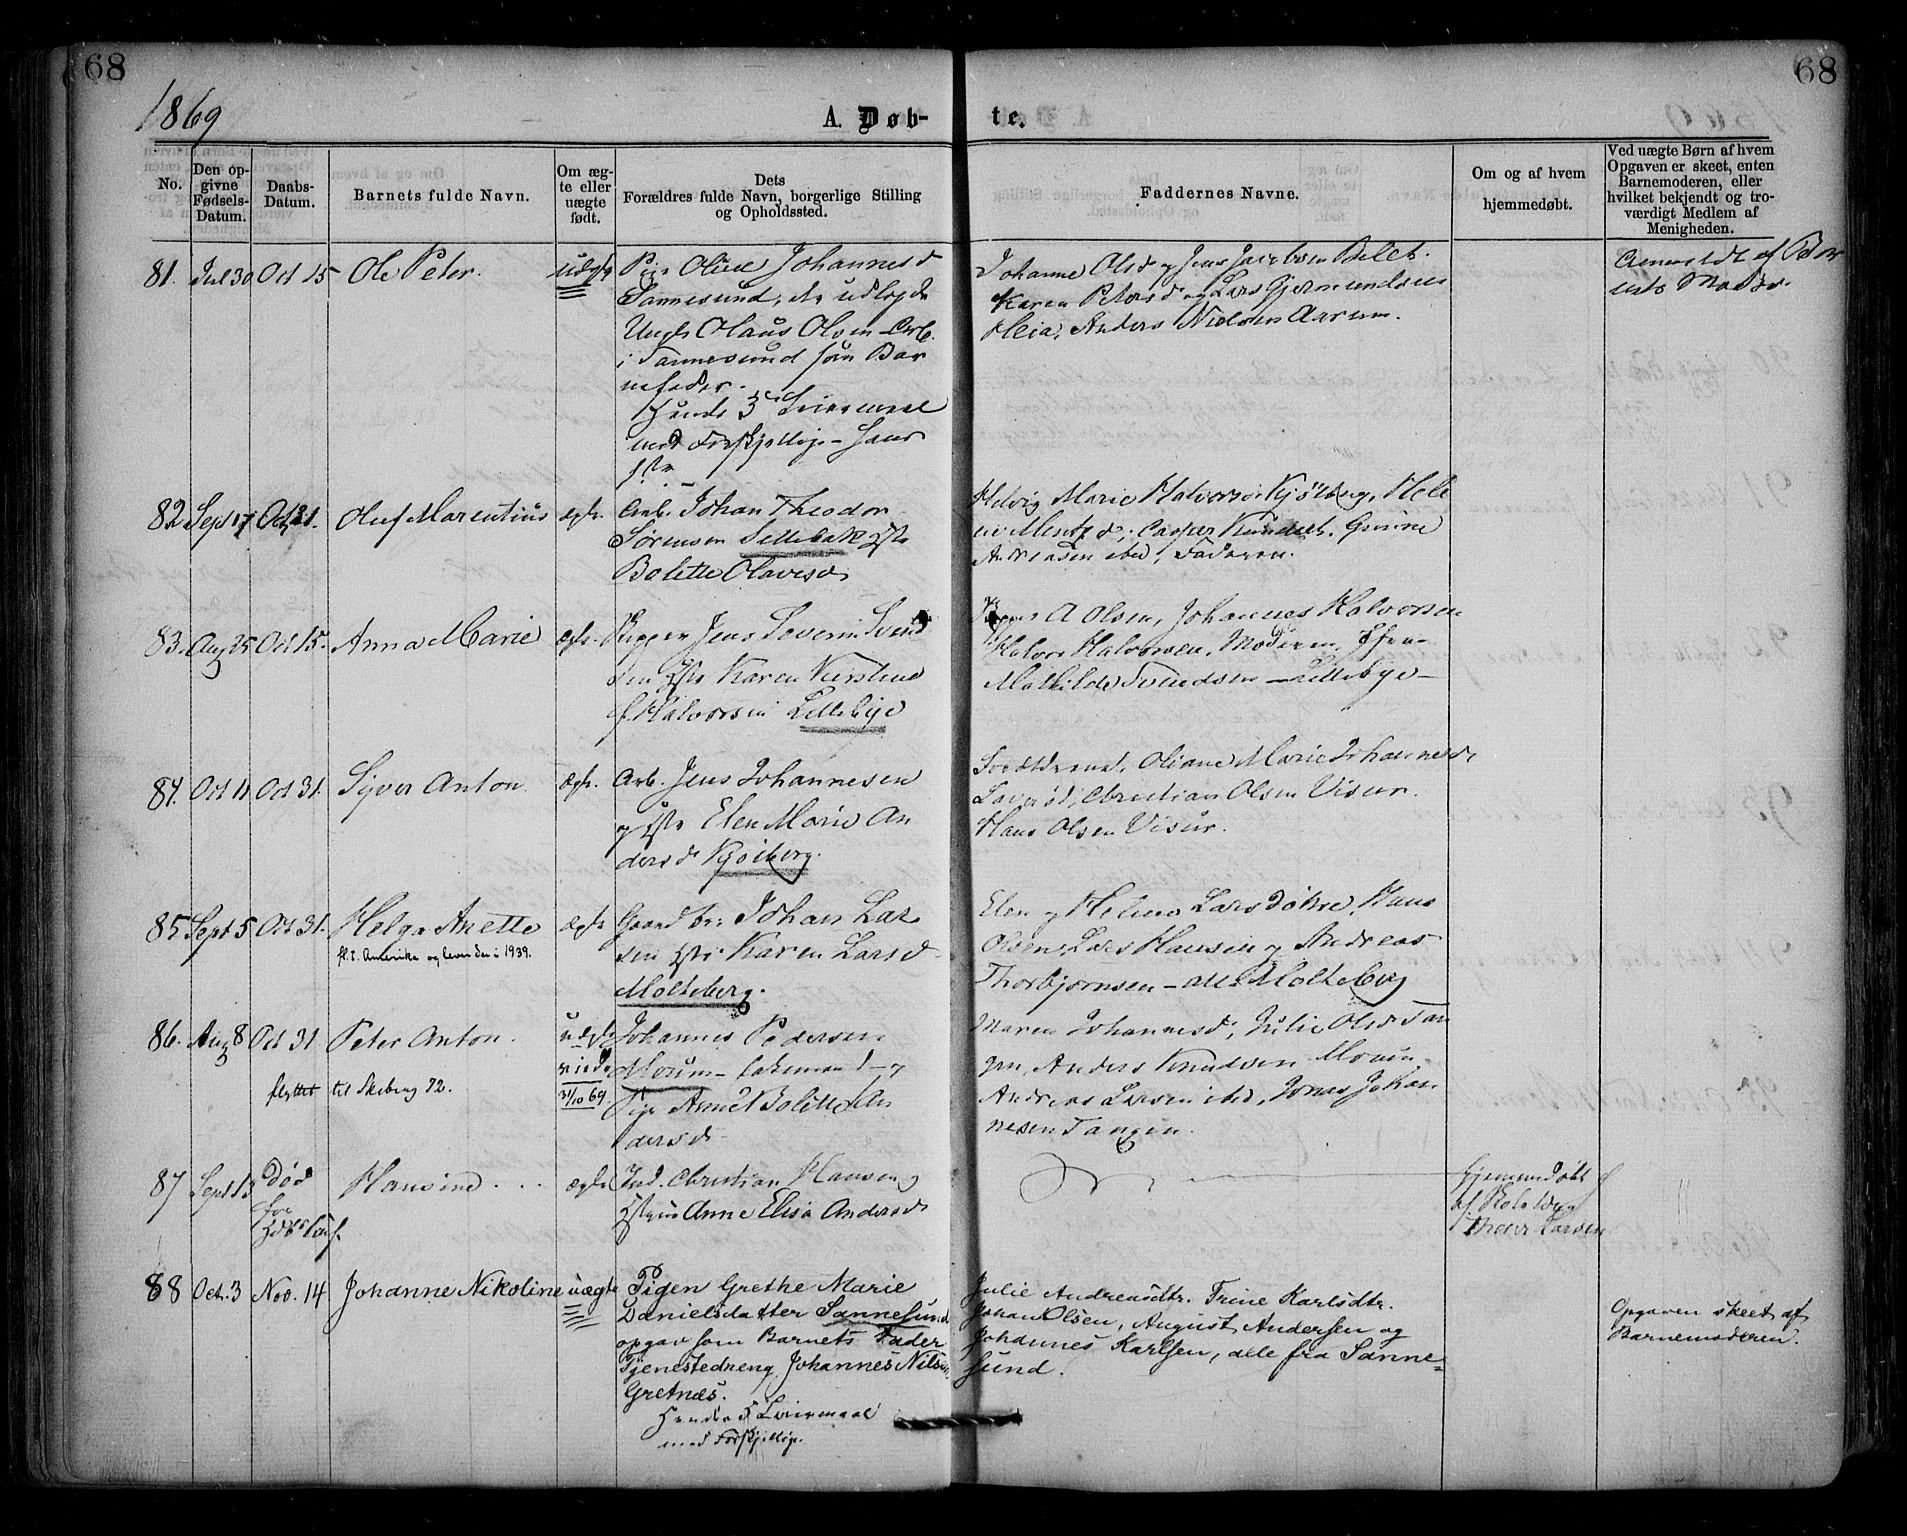 68
68
1869
A. Døb-
te.
No.
Den op-
givne
Fødsels-
Datum.
Daabs-
Datum.
Barnets fulde Navn.
Om æg-
te eller
uægte
født.
Dets
Forældres fulde Navn, borgerlige Stilling
og Opholdssted.
Faddernes Navne.
Om og af hvem
hjemmedøbt.
Ved uægte Børn af hvem
Opgaven er skeet, enten
Barnemoderen, eller
hvilket bekjendt og tro-
værdigt Medlem af
Menigheden.
81. Jul 30 Oct 15 Ole Peter. uægte
Pige Oline Johannesd
Sannesund,
Ungk. Olaus Olsen Arb.
i Sannesund som Bar
nefader.
Hendes 3 Leiermaal
med Forskjellige - Hans
1ste
Johanne Olsd og Jens Jacobsen
Karen Petersd og Lars Gjermundsen
Heia, Anders Nielsen Aarum.
Anmeldt af Bar
nets Moder
82 Sept 17 Oct 31. Oluf Marentius ægte
Arb. Johan Theodor
Sørensen Lillebak
Bolette Olavesd
Helvig Marie Halvorsd Kjølberg, Hele
Andreasen ibid, Faderen.
83. Aug 25 Oct 15. Anna Marie ægte.
Jens Severin Svend
sen Karen Kirstine
f. Halvorsen Lillebye
A Olsen, Johannes Halvorsen
Halvor Halvorsen, Moderen,
Mathilde Svendsen - Lillebye -
84. Oct 11 Oct 31. Syver Anton ægte.
Arb. Jens Johannesen
og Elen Marie An
dersd Kjølberg.
Oliane Marie Johannesd,
Christian Olsen Visur.
Hans Olsen Visur.
85 Sept 5 Oct 31. Helga Anette ægte
fl. t. Amerika og lever der i 1939.
Gaardbr: Johan Lar
sen Karen Larsd
Molteberg.
Elen og Helene Larsdøtre, Hans
Olsen, Lars Hansen og Andreas
Thorbjørnsen - alle Molteberg
86. Aug 8 Oct 31 Peter Anton.
31/10 69.
flyttet til Skeberg 72.
Johannes Pedersen
Moum
Pige Anne Bolette An
dersd
Maren Johannesd, Julie Olsd Tan
gen, Anders Knudsen Moum
Andreas Larsen ibid, Jonas Johan
nesen Tangen.
87 Sept 13 Død
før
Hansine ægte
Ind. Christian Hansen
Anne Elisa Andersd
hjemmedøbt
af
Larsen
88 Oct. 3 Nov. 14 Johanne Nikoline uægte
Pigen Grethe Marie
Danielsdatter Sannesund
opgav som Barnets Fader
Tjenestedreng Johannes Nilsen
Gretnæs.
Hendes Leiermaal
med Forskjellige.
Julie Andreasdtr. Trine Karlsdtr.
Johan Olsen, August Andersen og
Johannes Karlsen, alle fra Sanne=
sund.
Opgaven skeet af
Barnemoderen.